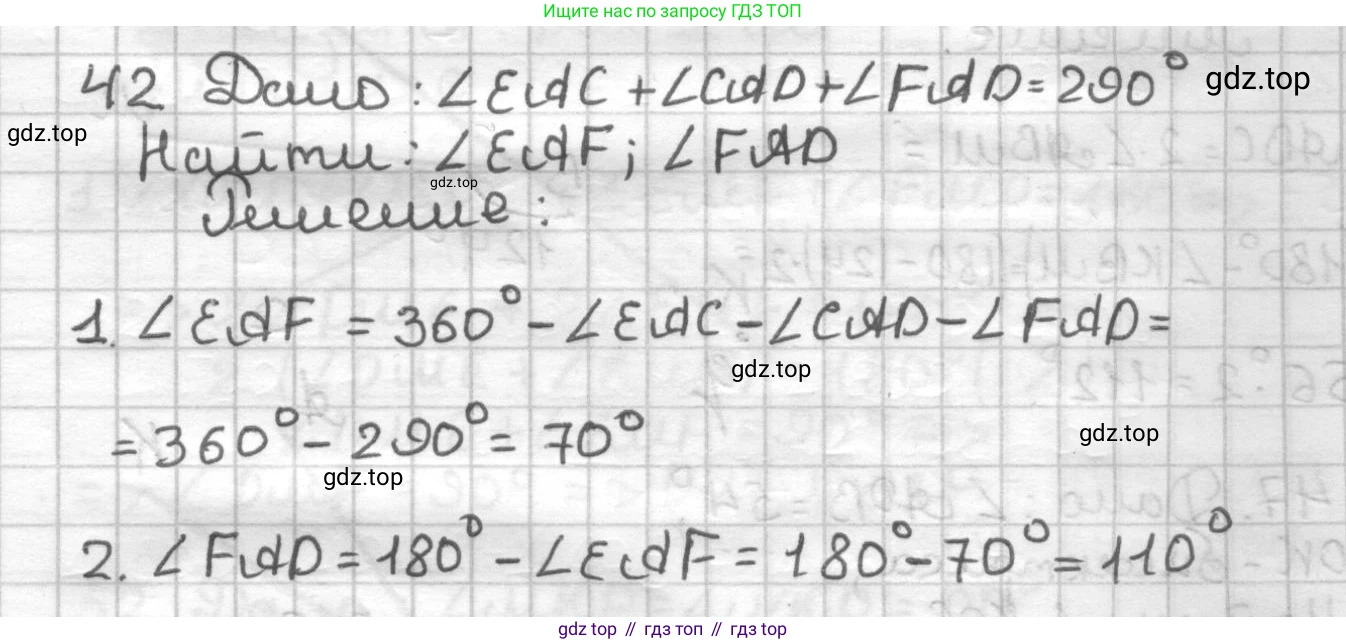 Ищите нас по запросу ГДЗ ТОП
42 Дано: ∠EAC + ∠CAD + ∠FAD = 290° gdz.top
gdz.top
Найти: ∠EAF; ∠FAD
gdz.top
Решение:
1. ∠EAF = 360° - ∠EAC - ∠CAD - ∠FAD =
gdz.top
= 360° - 290° = 70°
gdz.top
gdz.top
2. ∠FAD = 180° - ∠EAF = 180° - 70° = 110°
gdz top // гдз топ // гдз top